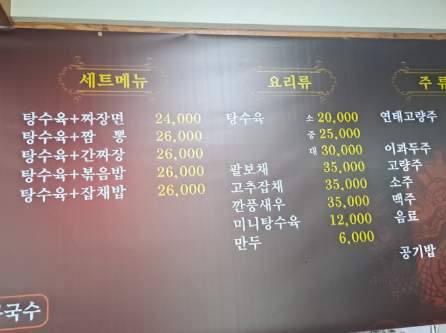 세트메뉴
탕수육+짜장면 24,000
탕수육+짬 뽕 26,000
탕수육+간짜장 26,000
탕수육+볶음밥 26,000
탕수육+잡채밥 26,000
요리류
탕수육 소 20,000
중 25,000
대 30,000
팔보채 35,000
고추잡채 35,000
깐풍새우 35,000
미니탕수육 12,000
만두 6,000
주 류
연태고량주
이과두주
고량주
소주
맥주
음료
공기밥
국수